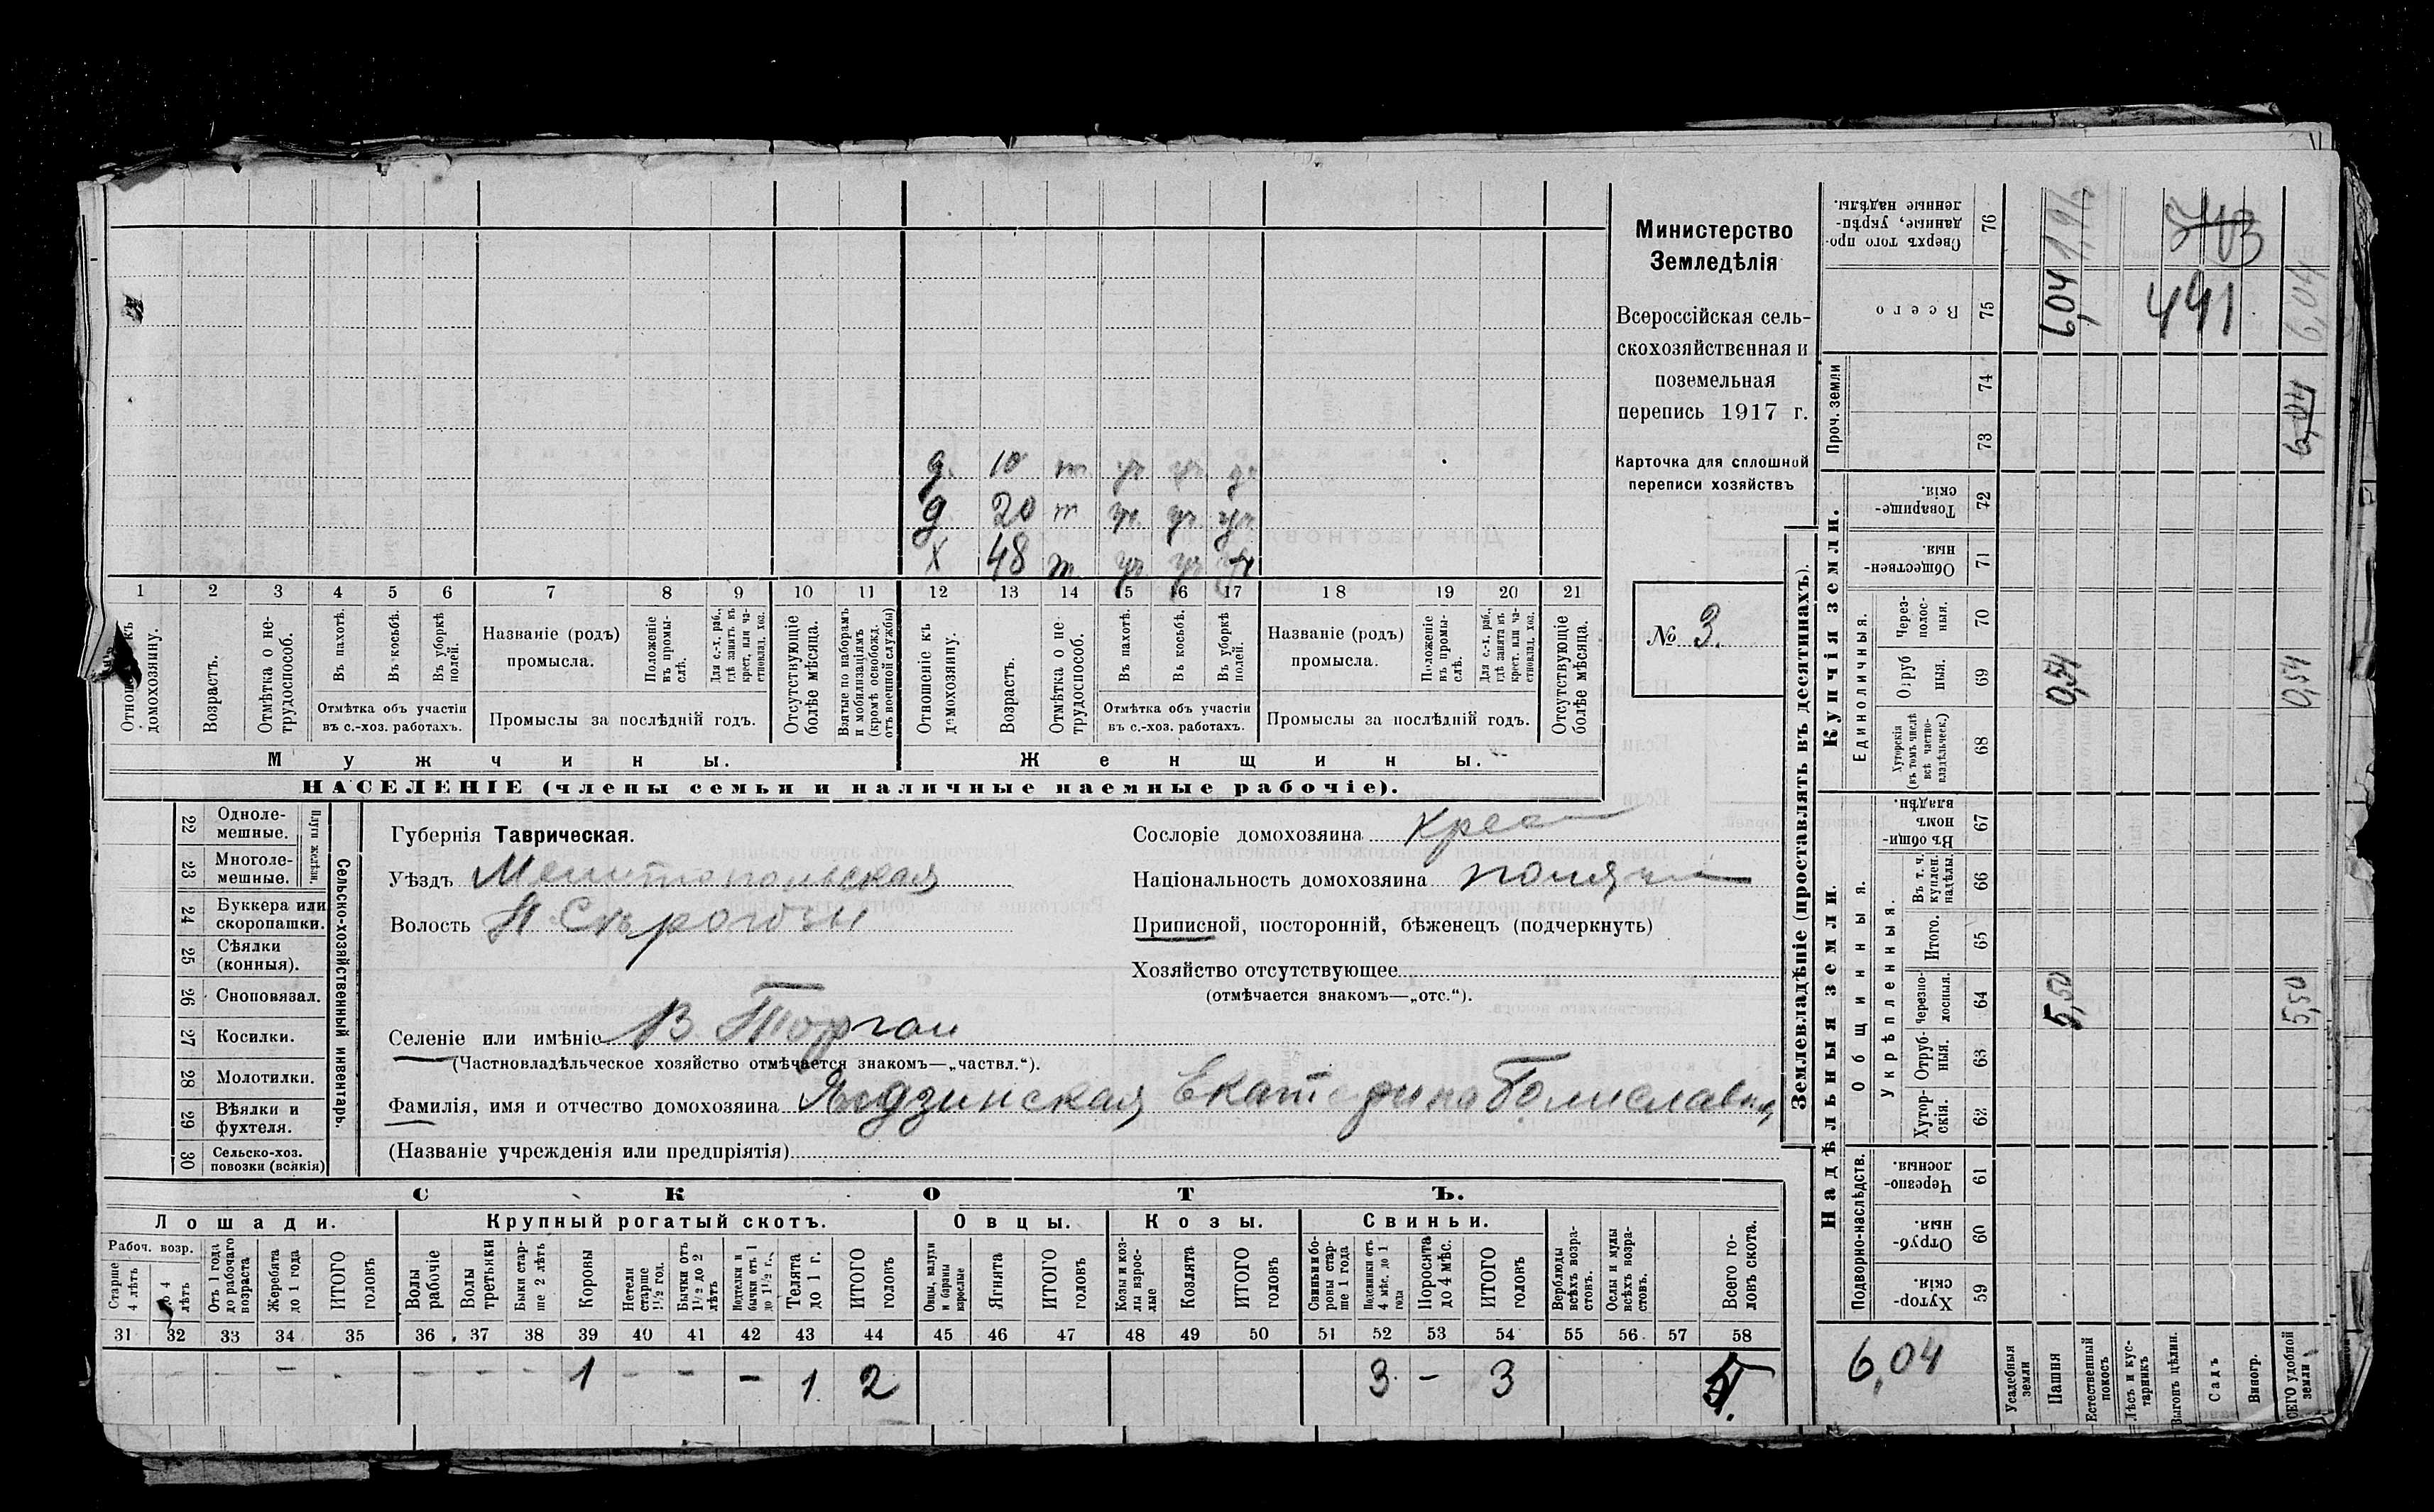 д. 10 т уч. уч. уч.
д 20 т уч. уч. уч.
х 48 т. уч уч уч
1 2 3 4 5 6 7 8 9 10 11 12 13 14 15 16 17 18 19 20 21
домохозяину.
Возрастъ.
Отмѣтка о нетрудоспособ.
Въ пахотѣ.
Въ косьбѣ.
Въ уборкѣ полей.
Отмѣтка объ участіи въ с.-хоз. работахъ.
Названіе (родъ) промысла.
Положеніе въ промыслѣ.
Для с.-х. раб., гдѣ занятъ въ крест. или частновлад. хоз.
Промыслы за послѣдній годъ.
Отсутствующіе болѣе мѣсяца.
Взятые по наборамъ и мобилизаціямъ (кромѣ освобожд. отъ военной службы)
Отношеніе къ домохозяину.
Возрастъ.
Отмѣтка о нетрудоспособ.
Въ пахотѣ.
Въ косьбѣ.
Въ уборкѣ полей.
Отмѣтка объ участіи въ с.-хоз. работахъ.
Названіе (родъ) промысла.
Положеніе въ промыслѣ.
Для с.-х. раб., гдѣ занята въ крест. или частновлад. хоз.
Промыслы за послѣдній годъ.
Отсутствующіе болѣе мѣсяца.
Мужчины.
Женщины.
НАСЕЛЕНІЕ (члены семьи и наличные наемные рабочіе).
Министерство
Земледѣлія
Всероссійская сель-
скохозяйственная и
поземельная
перепись 1917 г.
Карточка для сплошной
переписи хозяйствъ
№ 3.
22 Одноле-мешные.
23 Многоле-мешные.
Плуги желѣзн.
24 Буккера или скоропашки.
25 Сѣялки (конныя).
26 Сноповязал.
27 Косилки.
28 Молотилки.
29 Вѣялки и фухтеля.
30 Сельско-хоз. повозки (всякія)
Сельско-хозяйственный инвентарь.
Губернія Таврическая.
Уѣздъ Мелитопольская
Волость Н Сѣрогозы
Селеніе или имѣніе В. Торгаи
(Частновладѣльческое хозяйство отмѣчается знакомъ—„частвл.“).
Фамилія, имя и отчество домохозяина Екатерина
(Названіе учрежденія или предпріятія)
Сословіе домохозяина крес
Національность домохозяина
Приписной, посторонній, бѣженецъ (подчеркнуть)
Хозяйство отсутствующее
(отмѣчается знакомъ—„отс.“).
СКОТЪ.
Лошади.
Крупный рогатый скотъ.
Овцы.
Козы.
Свиньи.
Рабоч. возр.
Старше 4 лѣтъ
До 4 лѣтъ
Отъ 1 года до рабочаго возраста
Жеребята до 1 года
ИТОГО головъ
Волы рабочіе
Волы третьяки
Быки старше 2 лѣтъ
Коровы
Нетели старше 1½ год.
Бычки отъ 1½ до 2 лѣтъ
Подтелки и бычки отъ 1 до 1½ г.
Телята до 1 г.
ИТОГО головъ
Овцы, валухи и бараны взрослые
Ягнята
ИТОГО головъ
Козы и козлы взрослые
Козлята
ИТОГО головъ
Свиньи и боровы старше 1 года
Подсвинки отъ 4 мѣс. до 1 года
Поросята до 4 мѣс.
ИТОГО головъ
Верблюды всѣхъ возрастовъ.
Ослы и мулы всѣхъ возрастовъ.
Всего головъ скота.
31 32 33 34 35 36 37 38 39 40 41 42 43 44 45 46 47 48 49 50 51 52 53 54 55 56 57 58
– – – – – – 1 – – – 1 2 3 – 3 5
Землевладѣніе (проставлять въ десятинахъ).
Купчія земли.
Надѣльныя земли.
Проч. земли
Единоличныя.
Общинныя.
Укрѣпленныя.
Подворно-наслѣдств.
Сверхъ того проданные, укрѣпленные надѣлы. 76
Всего 75
74
73
Товарищескія. 72
Общественныя. 71
Черезполосныя. 70
Отрубныя. 69
Хуторскія (въ томъ числѣ всѣ частновладѣльческ.) 68
Въ общинномъ владѣн. 67
Въ т. ч. куплен. надѣлы. 66
Итого. 65
Черезполосныя. 64
Отрубныя. 63
Хуторскія. 62
Черезполосныя. 61
Отрубныя 60
Хуторскія. 59
6,04
Усадебныя земли
Пашня
Естественный покосъ
Лѣсъ и кустарникъ
Выгонъ цѣлин.
Садъ
Виногр.
ВСЕГО удобной земли
6,04
441
6,04
6,04
0,54
0,54
5,50
5,50